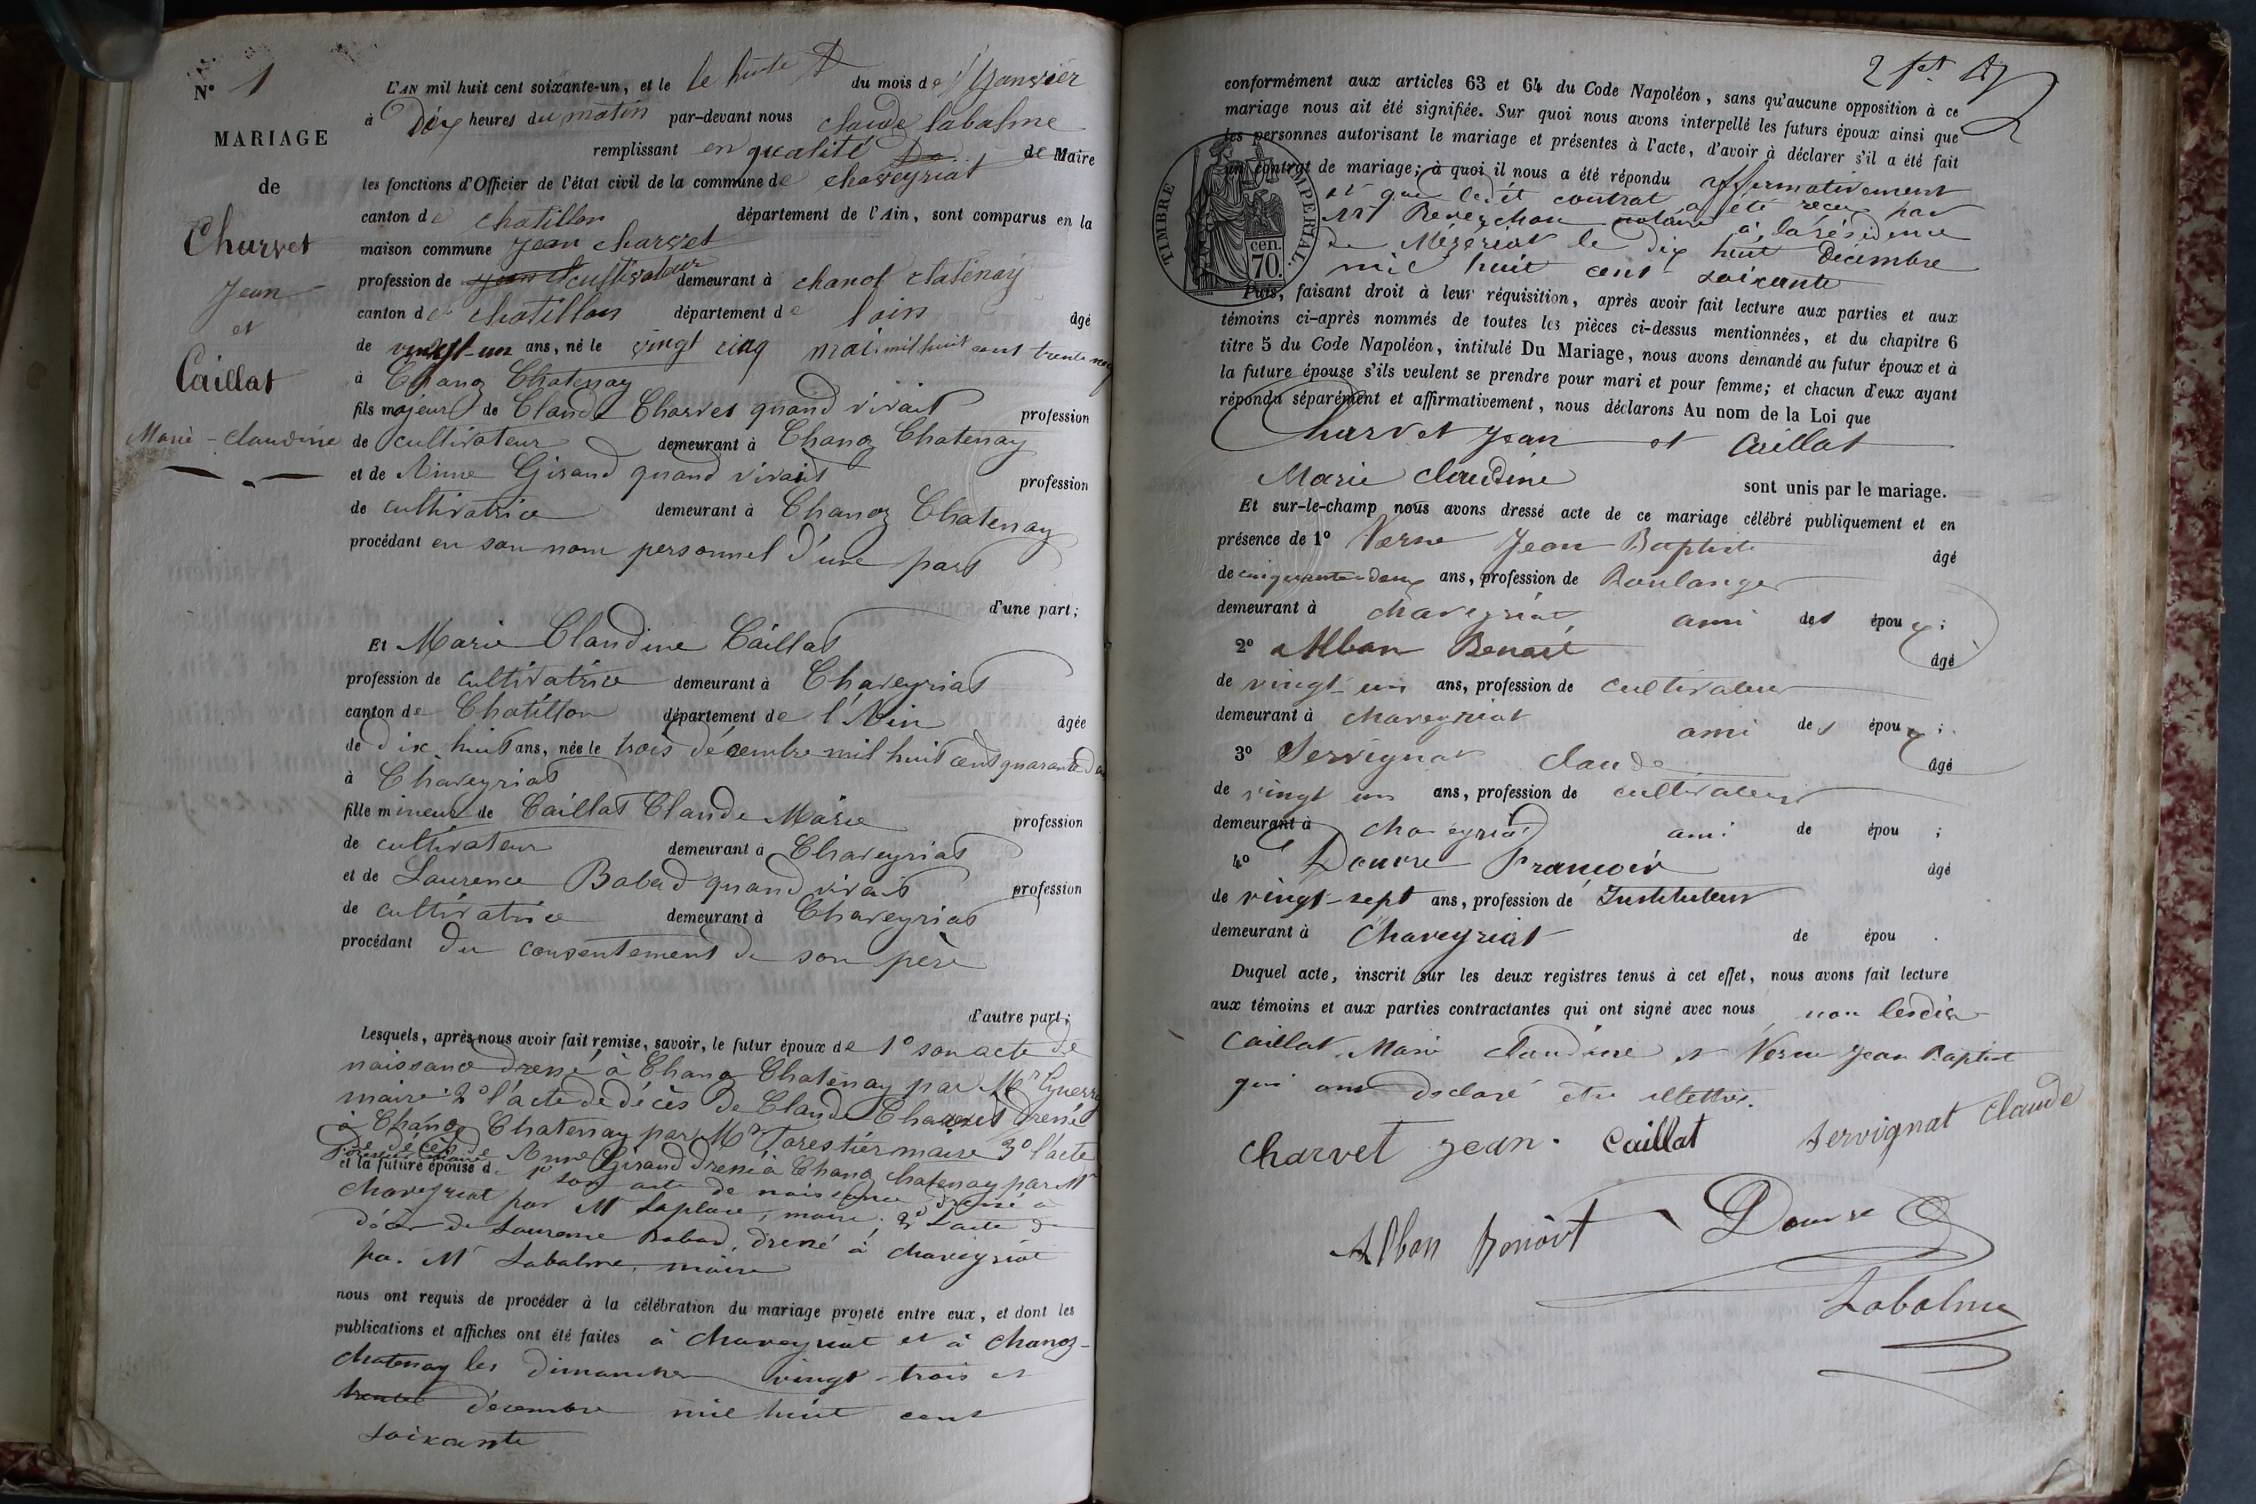 N° 1
MARIAGE
de
Charvet
Jean
et
Caillat
Marie-claudine
L'AN mil huit cent soixante-un, et le le huit du mois de Janvier
à Dix heures du matin par-devant nous claude Labalme
remplissant en qualité de Maire
les fonctions d'Officier de l'état civil de la commune de chaveyriat
canton de chatillon département de l'Ain, sont comparus en la
maison commune Jean charvet
profession de cultivateur demeurant à chanoz chatenay
canton de chatillon département de l'ain âgé
de vingt-un ans, né le vingt cinq mai mil huit cent trente neuf
à Chanoz Chatenay
fils majeur de Claude Charvet quand vivait profession
de cultivateur demeurant à Chanoz Chatenay
et de Anne Girand quand vivait profession
de cultivatrice demeurant à Chanoz Chatenay
procédant en son nom personnel d'une part
d'une part;
Et Marie Claudine Caillat
profession de cultivatrice demeurant à Chaveyriat
canton de Chatillon département de l'Ain âgée
de dix huit ans, née le trois décembre mil huit cent quarante deux
à Chaveyriat
fille mineur de Caillat Claude Marie profession
de cultivateur demeurant à Chaveyriat
et de Laurence Babad quand vivait profession
de cultivatrice demeurant à Chaveyriat
procédant du consentement de son père
d'autre part;
Lesquels, après nous avoir fait remise, savoir, le futur époux de 1° son acte de
naissance dressé à Chanoz Chatenay par Mr
maire 2° l'acte de décès de Claude Charvet dressé
à Chanoz Chatenay par Mr Forestier maire 3° l'acte
de décès de Anne Girand dressé à Chanoz chatenay par Mr
Forestier maire
et la future épouse d. 1° son acte de naissance dressé à
chaveyriat par Mr Laplace, maire. 2° l'acte de
décès de Laurence Babad, dressé à chaveyriat
par Mr Labalme, maire
nous ont requis de procéder à la célébration du mariage projeté entre eux, et dont les
publications et affiches ont été faites à chaveyriat et à chanoz-
chatenay les dimanches vingt-trois et
trente décembre mil huit cent
soixante
2
conformément aux articles 63 et 64 du Code Napoléon, sans qu'aucune opposition à ce
mariage nous ait été signifiée. Sur quoi nous avons interpellé les futurs époux ainsi que
les personnes autorisant le mariage et présentes à l'acte, d'avoir à déclarer s'il a été fait
un contrat de mariage; à quoi il nous a été répondu affirmativement
et que ledit contrat a été reçu par
Mr Reverchon notaire à la résidence
de Mézériat le dix huit Décembre
mil huit cent soixante
TIMBRE IMPERIAL.
cen.
70.
Puis, faisant droit à leur réquisition, après avoir fait lecture aux parties et aux
témoins ci-après nommés de toutes les pièces ci-dessus mentionnées, et du chapitre 6
titre 5 du Code Napoléon, intitulé Du Mariage, nous avons demandé au futur époux et à
la future épouse s'ils veulent se prendre pour mari et pour femme; et chacun d'eux ayant
répondu séparément et affirmativement, nous déclarons Au nom de la Loi que
Charvet Jean et Caillat
Marie Claudine sont unis par le mariage.
Et sur-le-champ nous avons dressé acte de ce mariage célébré publiquement et en
présence de 1° Verne Jean Baptiste âgé
de cinquante deux ans, profession de Boulanger
demeurant à chaveyriat ami des époux;
2° Alban Benoit âgé
de vingt-un ans, profession de cultivateur
demeurant à chaveyriat ami des époux;
3° Servignat claude âgé
de vingt un ans, profession de cultivateur
demeurant à chaveyriat ami de épou ;
4° Douvre François âgé
de vingt-sept ans, profession de Instituteur
demeurant à Chaveyriat de épou .
Duquel acte, inscrit sur les deux registres tenus à cet effet, nous avons fait lecture
aux témoins et aux parties contractantes qui ont signé avec nous, non lesdits
Caillat Marie claudine et Verne Jean Baptiste
qui ont déclaré être illettrés.
charvet jean. Caillat Servignat Claude
Alban Benoit Douvre
Labalme